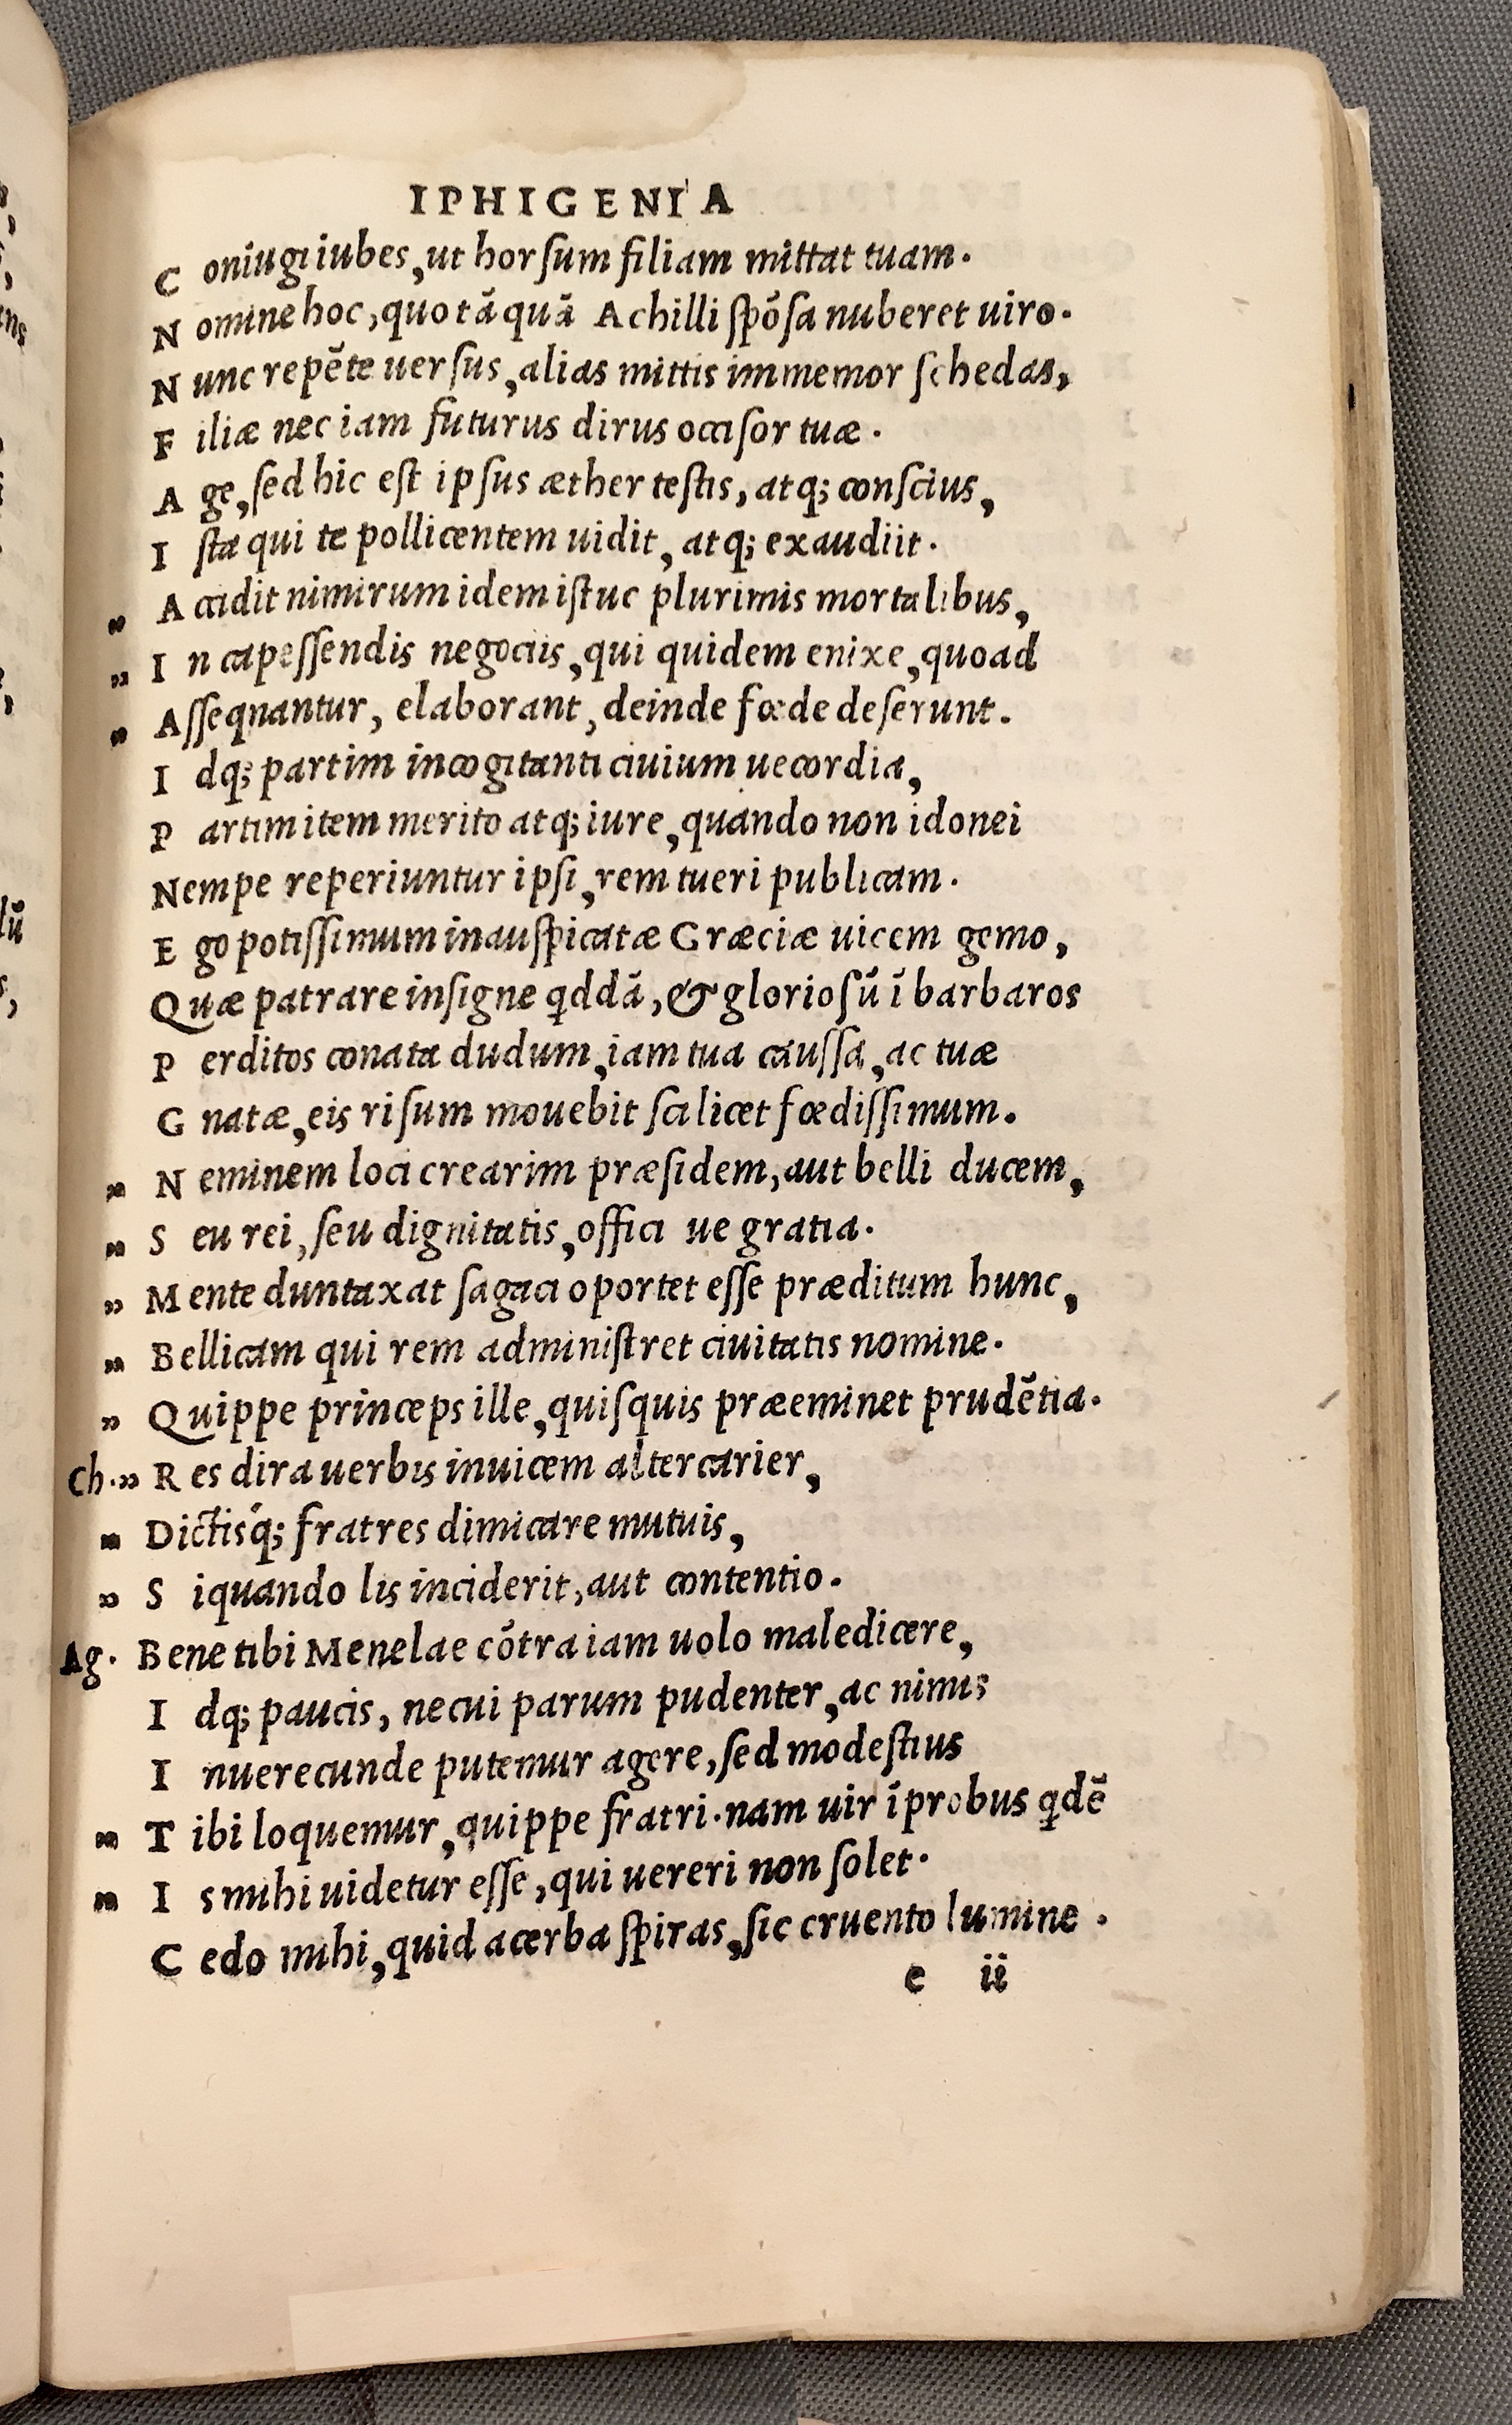 IPHIGENIA
Coniugi iubes, ut horsum filiam mittat tuam.
Nomine hoc, quo tã quã Achilli spõsa nuberet uiro.
Nunc repẽte uersus, alias mittis immemor schedas,
Filiæ nec iam futurus dirus occisor tuæ.
Age, sed hic est ipsus æther testis, atq; conscius,
Ista qui te pollicentem uidit, atq; exaudiit.
„ Accidit nimirum idem istuc plurimis mortalibus,
„ In capessendis negociis, qui quidem enixe, quoad
„ Assequantur, elaborant, deinde fœde deserunt.
Idq; partim incogitanti ciuium uecordia,
Partim item merito atq; iure, quando non idonei
Nempe reperiuntur ipsi, rem tueri publicam.
Ego potissimum inauspicatæ Græciæ uicem gemo,
Quæ patrare insigne qddã, & gloriosũ ĩ barbaros
Perditos conata dudum, iam tua caussa, ac tuæ
Gnatæ, eis risum mouebit scilicet fœdissimum.
„ Neminem loci crearim præsidem, aut belli ducem,
„ Seu rei, seu dignitatis, offici ue gratia.
„ Mente duntaxat sagaci oportet esse præditum hunc,
„ Bellicam qui rem administret ciuitatis nomine.
„ Quippe princeps ille, quisquis præeminet prudẽtia.
Ch. „ Res dira uerbis inuicem altercarier,
„ Dictisq́; fratres dimicare mutuis,
„ Siquando lis inciderit, aut contentio.
Ag. Bene tibi Menelae cõtra iam uolo maledicere,
Idq; paucis, ne cui parum pudenter, ac nimis
Inuerecunde putemur agere, sed modestius
„ Tibi loquemur, quippe fratri. nam uir ĩprobus qdẽ
„ Is mihi uidetur esse, qui uereri non solet.
Cedo mihi, quid acerba spiras, sic cruento lumine.
e ii